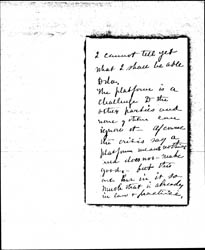 I cannot tell yet
what I shall be able
to do.
The platform is a
challenge to the
other parties and
none of them can
ignore it. Of course
the critics say a
platform means nothing
and does not make
good, but this
one has in it so
much that is already
in law & practice,